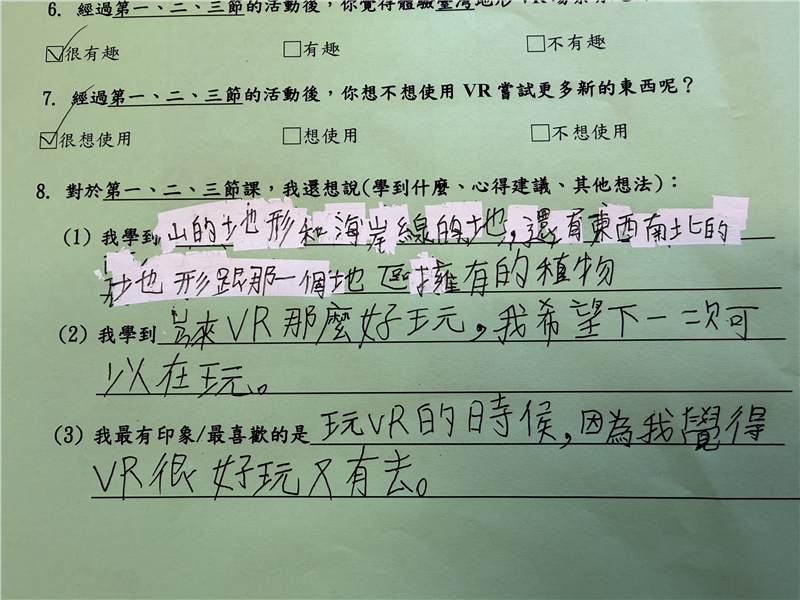 6. 經過第一、二、三節的活動後，你覺得體驗臺灣地形 VR
☑很有趣 □有趣 □不有趣
7. 經過第一、二、三節的活動後，你想不想使用 VR 嘗試更多新的東西呢？
☑很想使用 □想使用 □不想使用
8. 對於第一、二、三節課，我還想說(學到什麼、心得建議、其他想法)：
(1) 我學到山的地形和海岸線的地，還有東西南北的
地形跟那一個地區擁有的植物
(2) 我學到 來VR那麼好玩，我希望下一次可
以在玩。
(3) 我最有印象/最喜歡的是 玩VR的時候，因為我覺得
VR很好玩又有去。